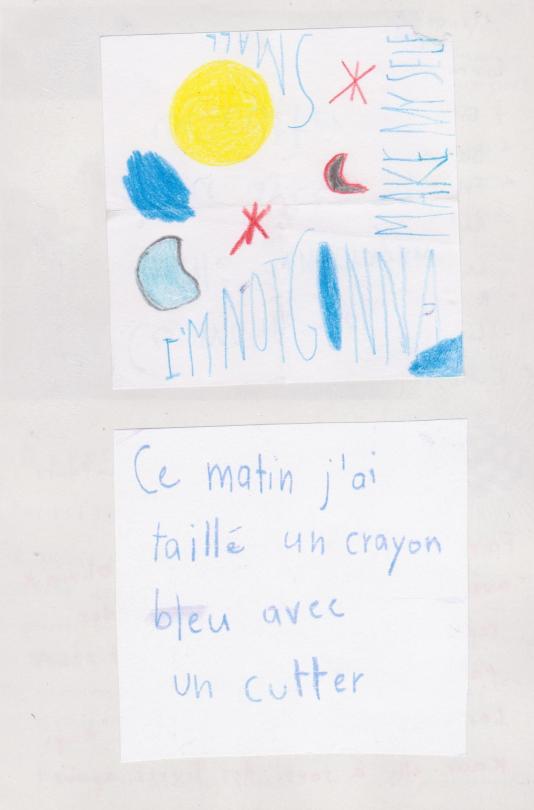 I'M NOT GONNA
MAKE MY SELF
SMALL
Ce matin j'ai
taillé un crayon
bleu avec
un cutter